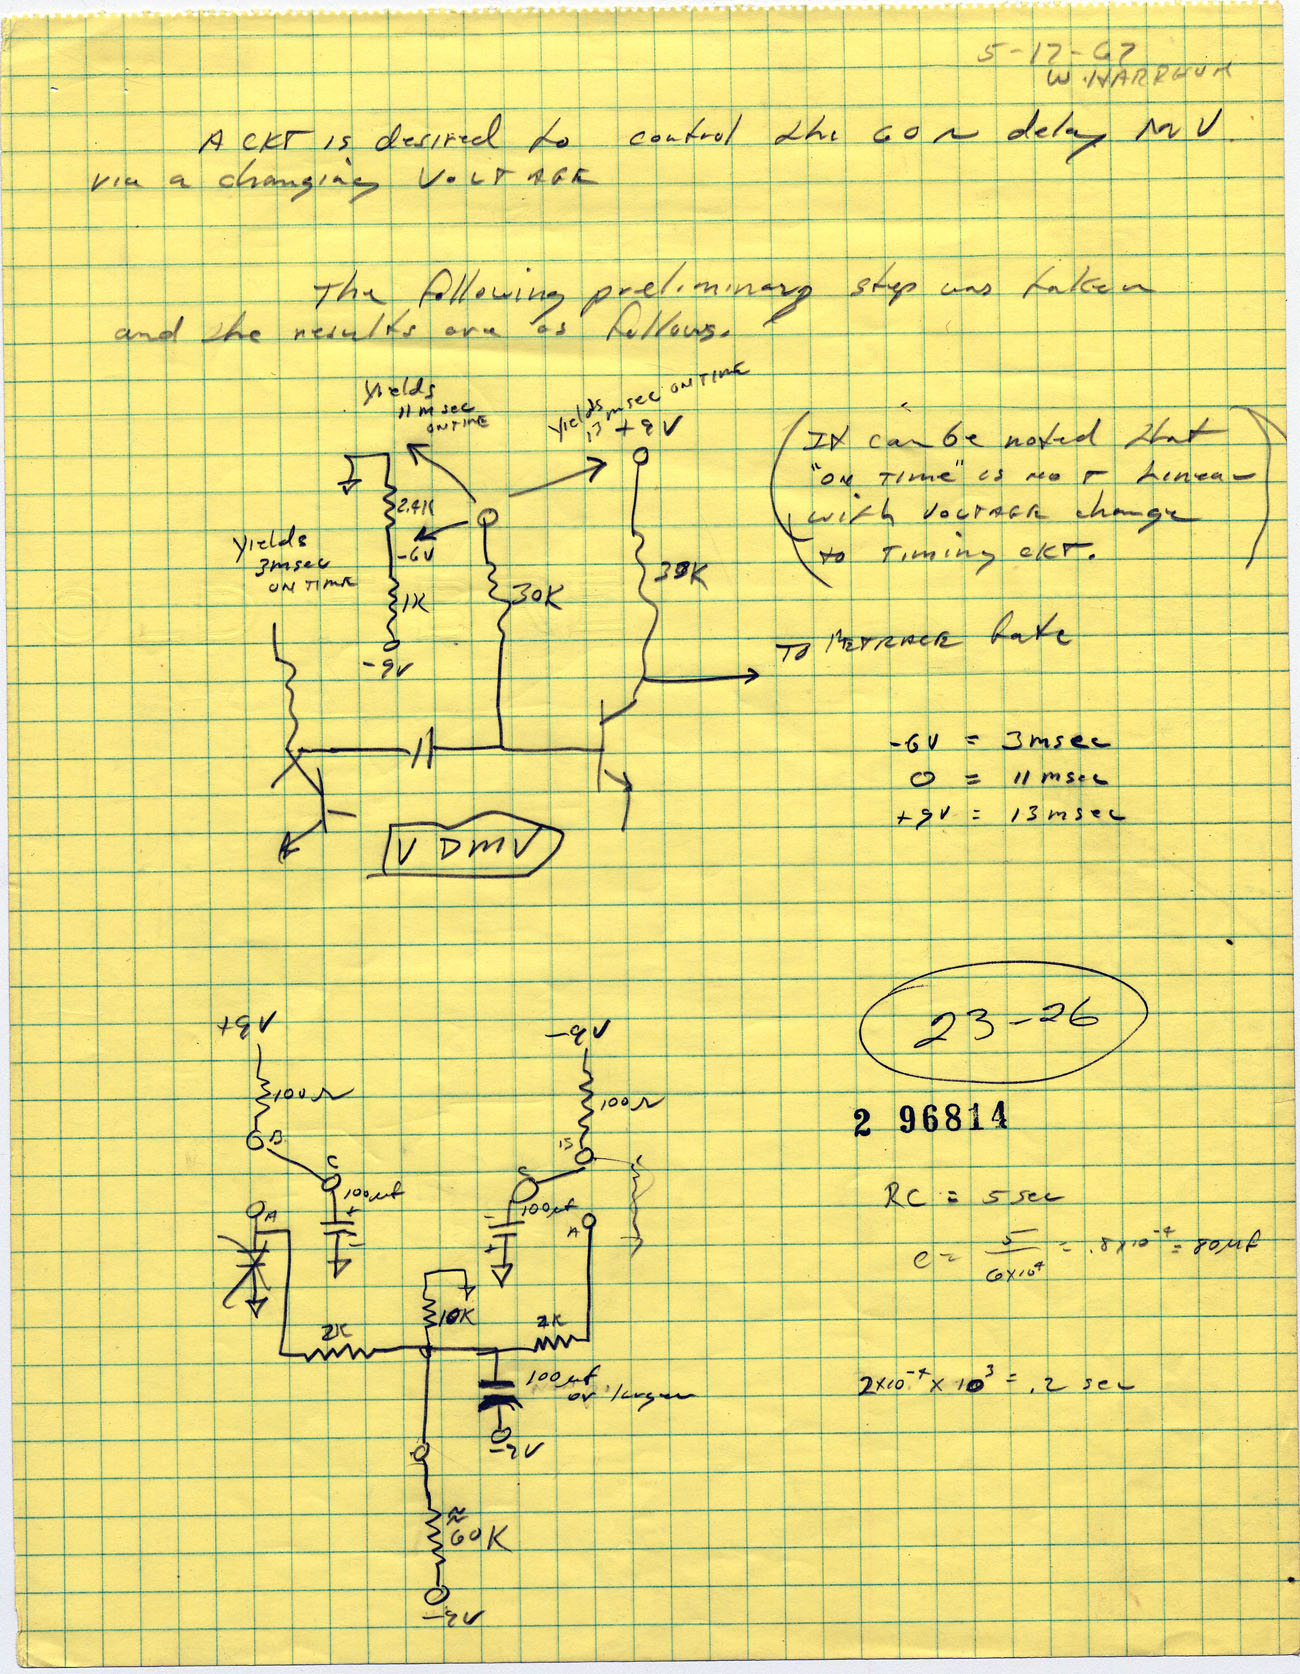 5-17-67
W. HARRISON
A CKT is desired to control the 60 ~ delay MV.
via a changing VOLTAGE
The following preliminary step was taken
and the results are as follows.
Yields
11 msec
ON TIME
yields
13 msec ON TIME
+9V
(It can be noted that
"ON TIME" is NOT Linear
with VOLTAGE change
to Timing CKT.)
2.4K
-6V
Yields
3msec
ON TIME
1K
30K
-9V
TO RETRACE Gate
-6V = 3msec
0 = 11 msec
+9V = 13 msec
V DMV
23-26
+9V
-9V
100Ω
100Ω
2 96814
B
C
100µf
+
-
A
-
100µf
+
A
RC = 5 sec
C = 5/6x10⁴ = .8x10⁻⁴ = 80µf
10K
2K
2K
100µf
or larger
-9V
2x10⁻⁴ x 10³ = .2 sec
≈
60K
-9V